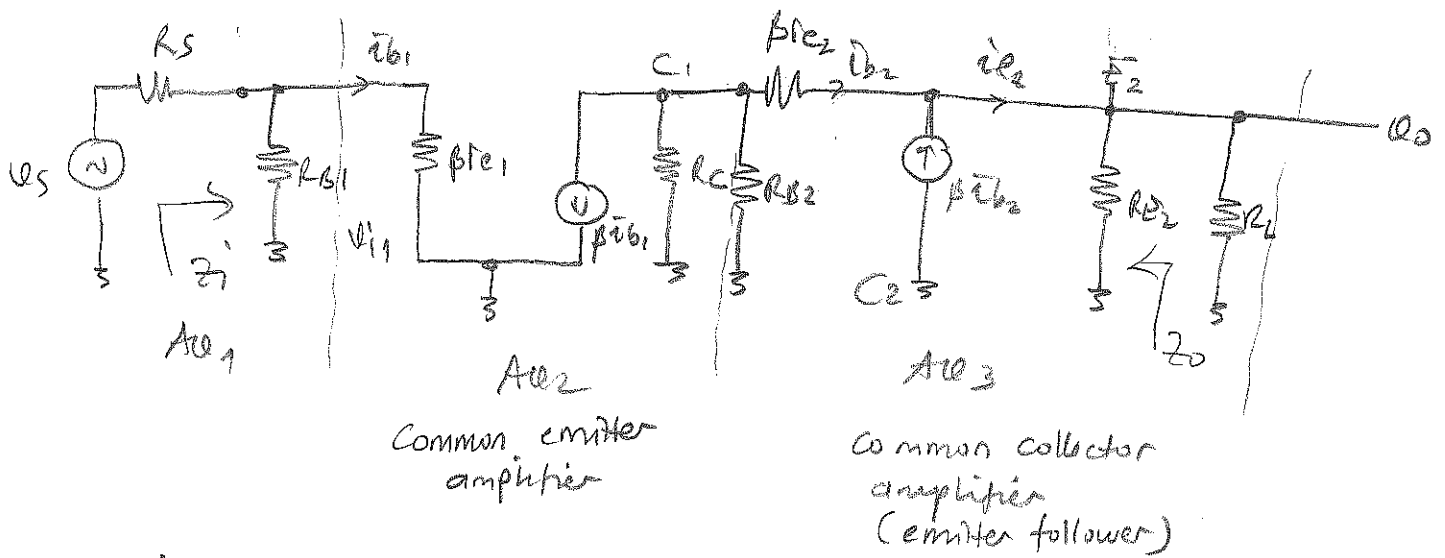 Rs
ib1
C1
βre2
ib2
ie2
E2
vo
vs
RB1
βre1
vi1
Zi
βib1
RC
RB2
βib2
C2
RE2
RL
Zo
Av1
Av2
Av3
Common emitter
amplifier
Common collector
amplifier
(emitter follower)